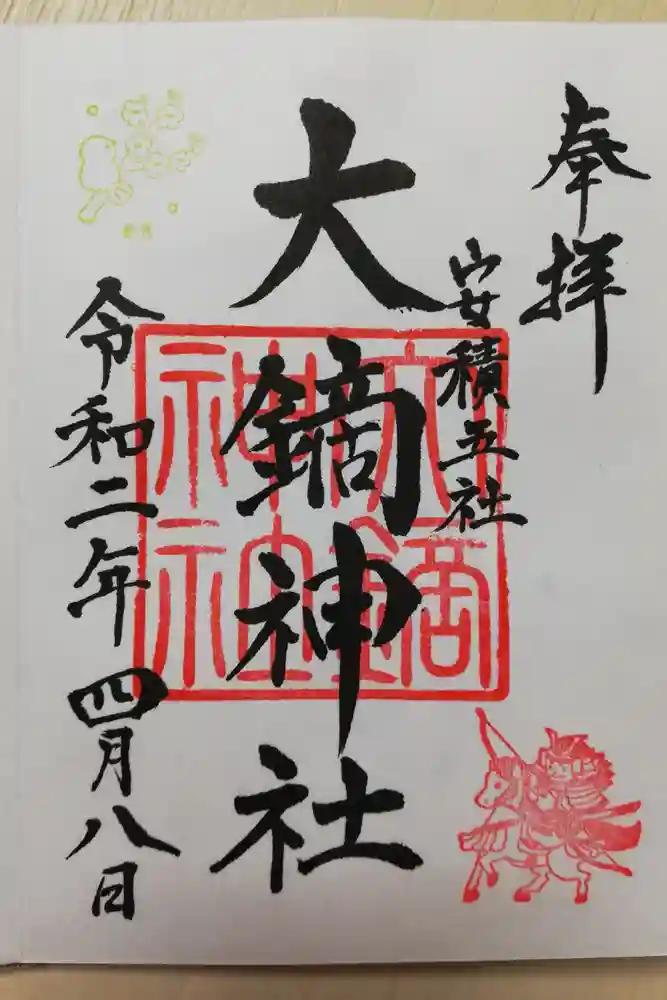 奉拝
安積五社
大鏑神社
大鏑神社
令和二年四月八日